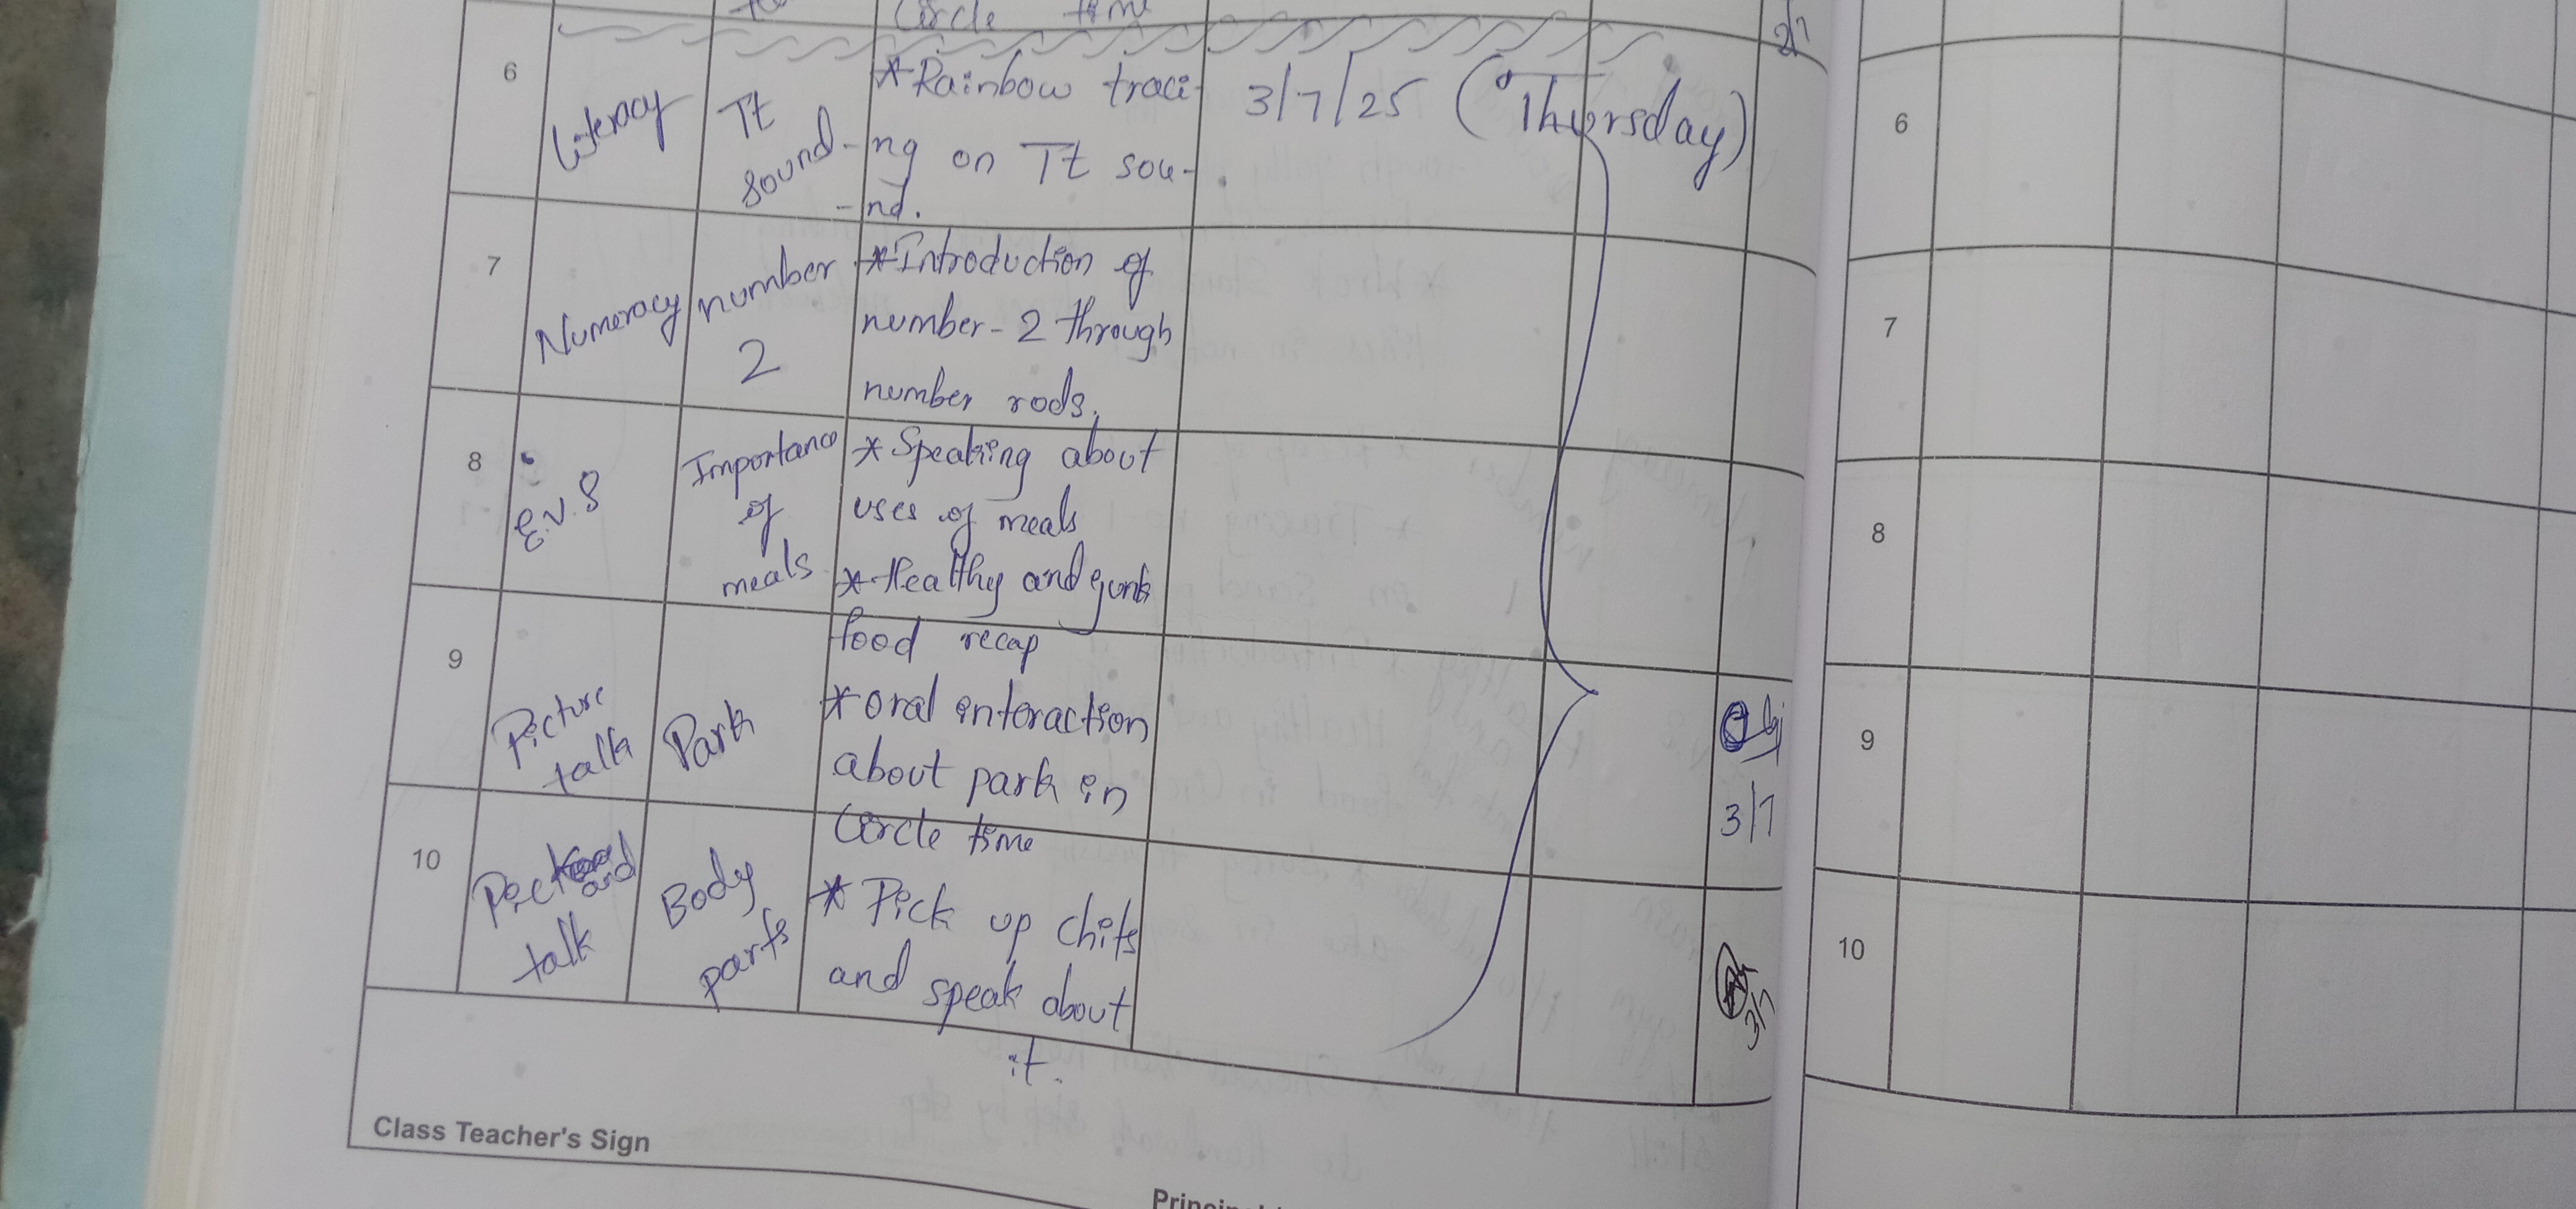 Circle time
2/7
6
Literacy
Tt
sound
*Rainbow traci-
-ng on Tt sou-
-nd.
3/7/25 (Thursday)
7
Numeracy
number
2
*Introduction of
number-2 through
number rods.
8
E.V.S
Importance
of
meals
*Speaking about
uses of meals
*Healthy and junk
food recap
9
Picture
talk
Park
*oral interaction
about park in
Circle time
3/7
10
Pick and
talk
Body
parts
* Pick up chits
and speak about
it.
3/7
Class Teacher's Sign
6
7
8
9
10